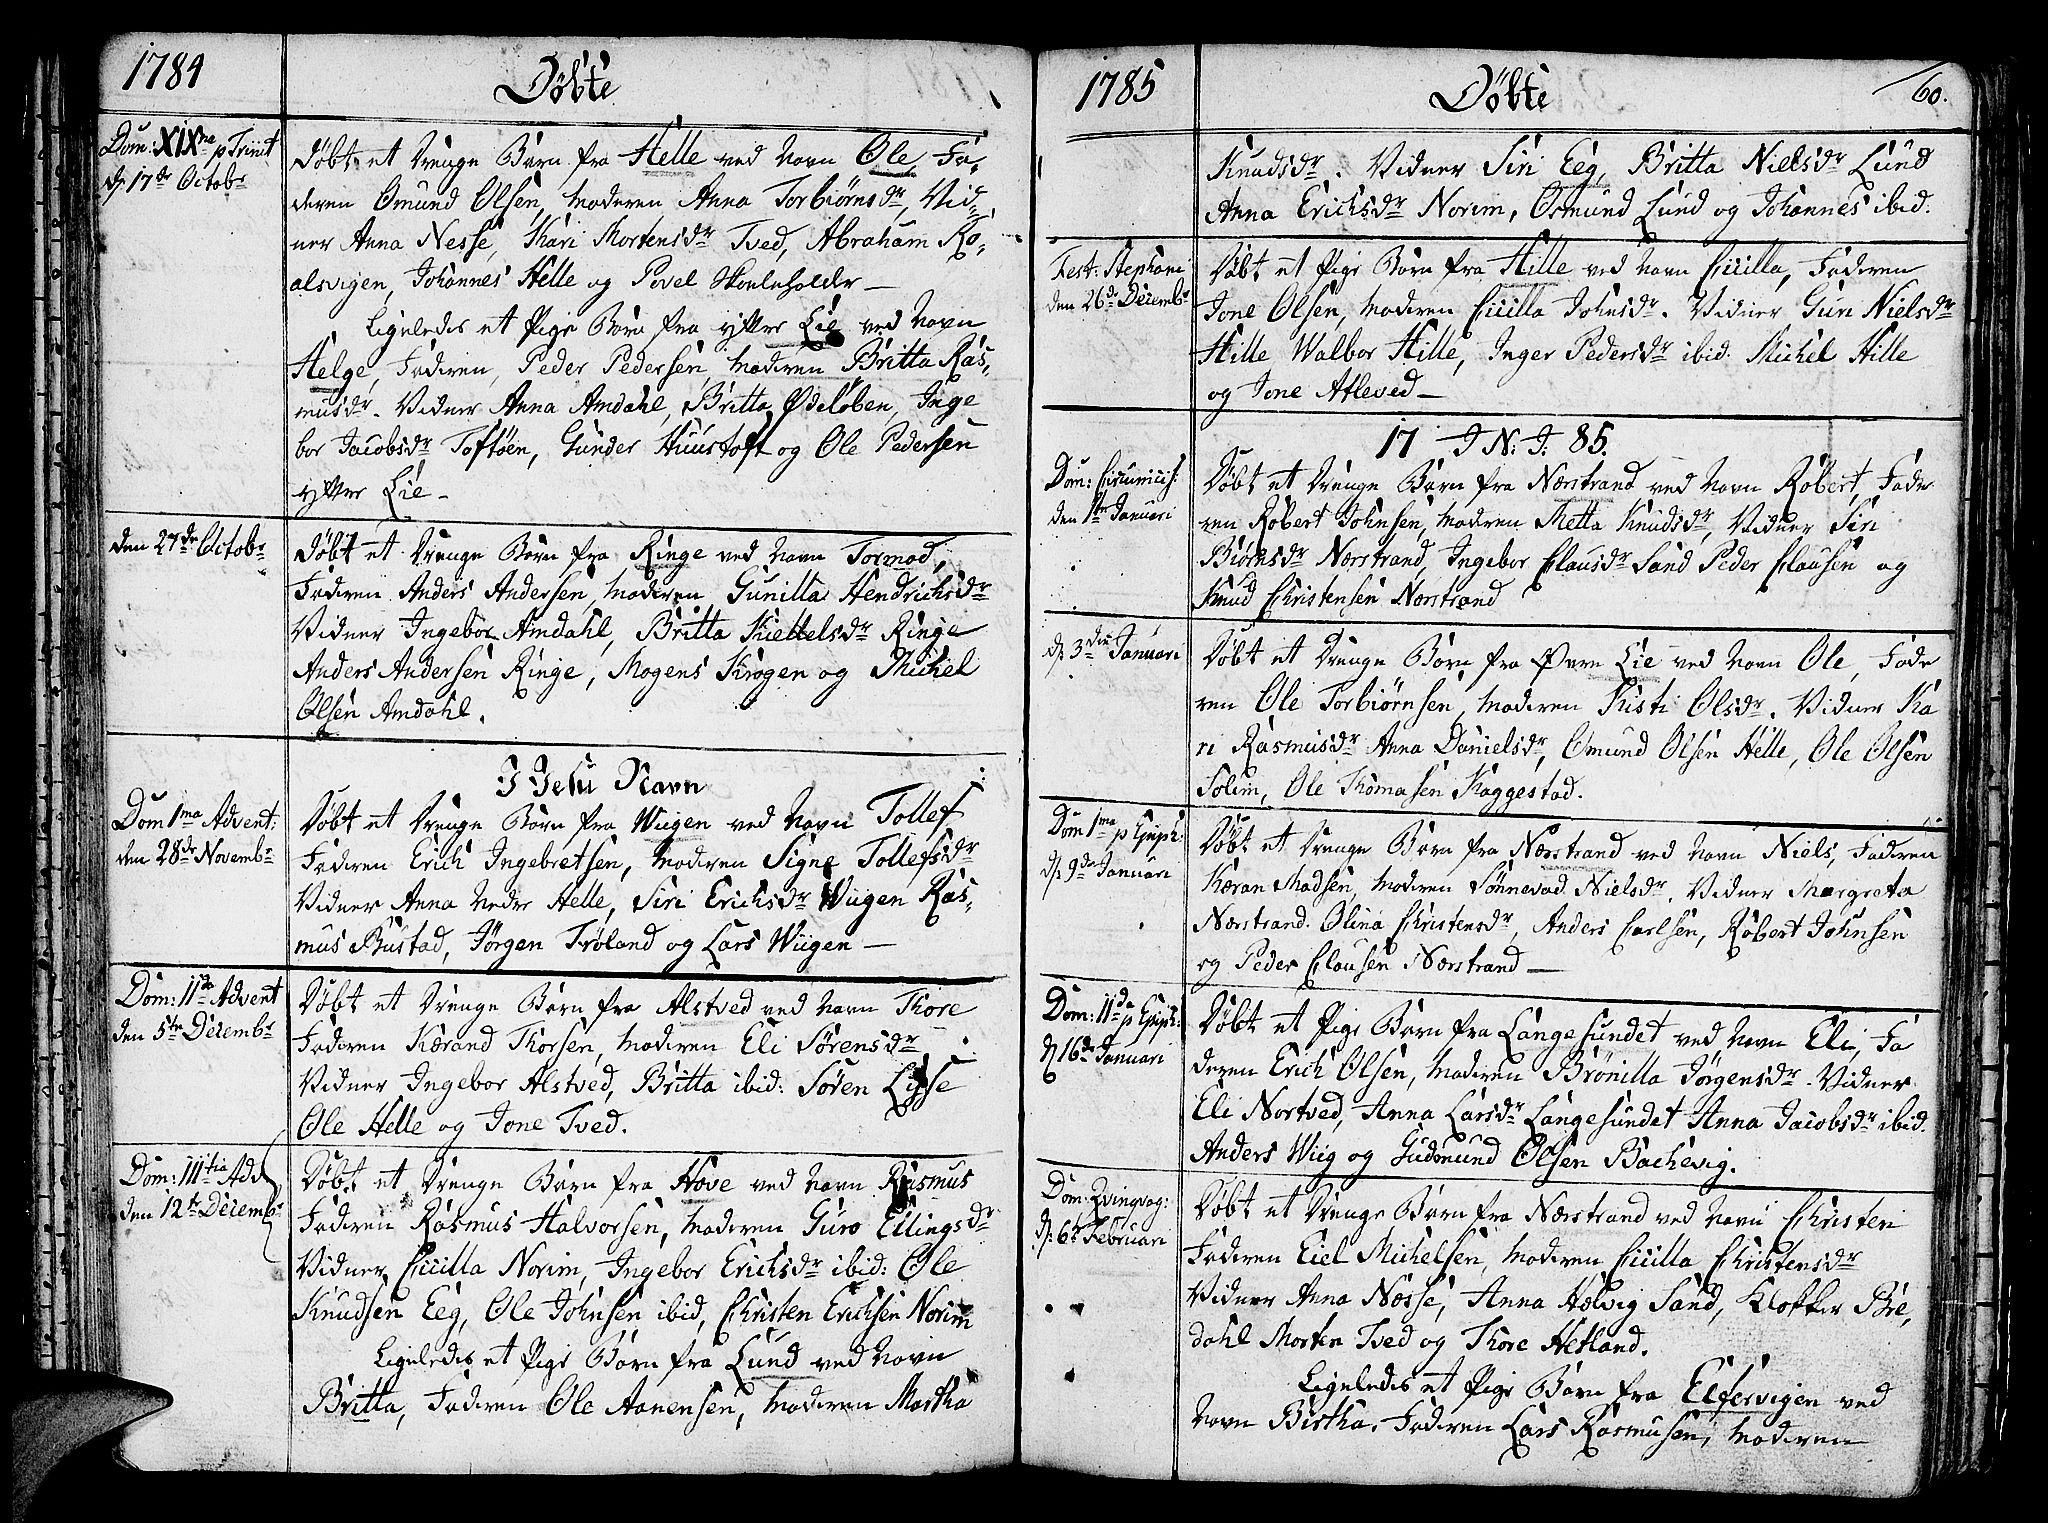 1784
Döbte
Dom: XIXna p Trinit
d. 17de Octobr
Döbt et Drenge Barn fra Helle ved Navn Ole, Fa-
deren Omund Olsen, Moderen Anna Torbiörnsdr, Vid-
ner Anna Nesse, Kari Mortensdr Tved, Abraham Ro-
alsvigen, Johannes Helle og Povel Skoleholder —
Ligeledes et Pige Barn fra yttre Lie ved Navn
Helge, Faderen, Peder Pedersen, Moderen Britta Ras-
musdr. Vidner Anna Amdahl, Britta Ödeloben, Inge
bor Jacobsdr Toftöen, Gunder Huustoft og Ole Pedersen
yttre Lie -
den 27de Octobr
Döbt et Drenge Barn fra Ringe ved Navn Tormod,
Faderen Anders Andersen, Moderen Gunilla Hendrichsdr
Vidner Ingebor Amdahl, Britta Kiettelsdr Ringe
Anders Andersen Ringe, Mogens Krogen og Michel
Olsen Amdahl.
I Jesu Navn
Dom 1ma Advent:
den 28de Novembr
Döbt et Drenge Barn fra Wiigen ved Navn Tollef
Faderen Erich Ingebretsen, Moderen Signe Tollefsdr
Vidner Anna Nedre Helle, Siri Erichsdr Wiigen Ras-
mus Bustad, Jörgen Tröland og Lars Wiigen —
Dom: IIda Advent
den 5te Decembr
Döbt et Drenge Barn fra Alstved ved Navn Thore
Faderen Kærand Thorsen, Moderen Eli Sörensdr
Vidner Ingebor Alstved, Britta ibid: Sören Lysse
Ole Helle og Jone Tved.
Dom: IIItia Adv
den 12te Decembr
Döbt et Drenge Barn fra Hove ved Navn Rasmus
Faderen Rasmus Halvorsen, Moderen Guro Ellingsdr
Vidner Cicilla Norim, Ingebor Erichsdr ibid: Ole
Knudsen Eeg, Ole Johnsen ibid, Christen Erichsen Norim
Ligeledes et Pige Barn fra Lund ved Navn
Britta, Faderen Ole Aanensen, Moderen Martha
1785
Döbte
60.
Knudsdr. Vidner Siri Eeg, Britta Nielsdr Lund
Anna Erichsdr Norim, Osmund Lund og Johannes ibid.
Fest: Stephani
den 26de Decembr
Döbt et Pige Barn fra Hille ved Navn Cicilla, Faderen
Jone Olsen, Moderen Cicilla Johnsdr. Vidner Guri Nielsdr
Hille Walbor Hille, Inger Pedersdr ibid. Michel Hille
og Jone Atleved —
17 I N: J. 85.
Dom: Circumcis:
den 1te Januari
Döbt et Drenge Barn fra Nærstrand ved Navn Robert, Fade
ren Robert Johnsen, Moderen Metta Knudsdr, Vidner Siri
Biörnsdr Nærstrand, Ingebor Clausdr Sand Peder Clausen og
Knud Christensen Nærstrand
d. 3die Januari
Döbt et Drenge Barn fra Övre Lie ved Navn Ole, Fade
ren Ole Torbiörnsen, Moderen Kisti Olsdr. Vidner Ka
ri Rasmusdr Anna Danielsdr, Omund Olsen Helle, Ole Olsen
Solim, Ole Thomasen Kaggestad.
Dom 1ma p Epiph:
d. 9de Januari
Döbt et Drenge Barn fra Nærstrand ved Navn Niels, Faderen
Kæran Madsen, Moderen Sönnevad Nielsdr. Vidner Margreta
Nærstrand. Olina Christensdr, Anders Carlsen, Robert Johnsen
og Peder Clausen Nærstrand —
Dom: IIda p Epiph:
d 16de Januari
Döbt et Pige Barn fra Langesundet ved Navn Eli, Fa
deren Erich Olsen, Moderen Brönilla Jörgensdr. Vidner
Eli Nortved, Anna Larsdr Langesundet Anna Jacobsdr ibid.
Anders Wiig og Gudmund Olsen Bachevig.
Dom: Qvingvag:
d. 6te Februari
Döbt et Drenge Barn fra Nærstrand ved Navn Christen
Faderen Eiel Michelsen, Moderen Cicilla Christensdr
Vidner Anna Næsse, Anna Hælvig Sand, Klokker Bre,
dahl Morten Tved og Thore Hetland.
Ligeledes et Pige Barn fra Elfervigen ved
Navn Birtha. Faderen Lars Rasmusen, Moderen